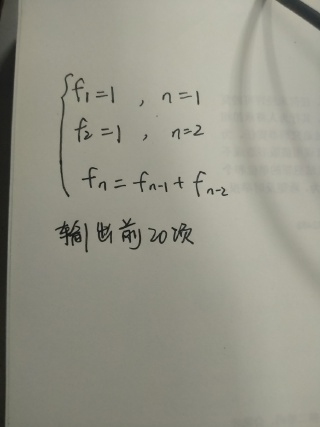 f₁=1 , n=1
f₂=1 , n=2
fₙ=fₙ₋₁+fₙ₋₂
输出前20项